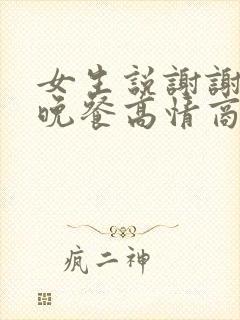 女生說謝謝
晚餐高情商
疯二神